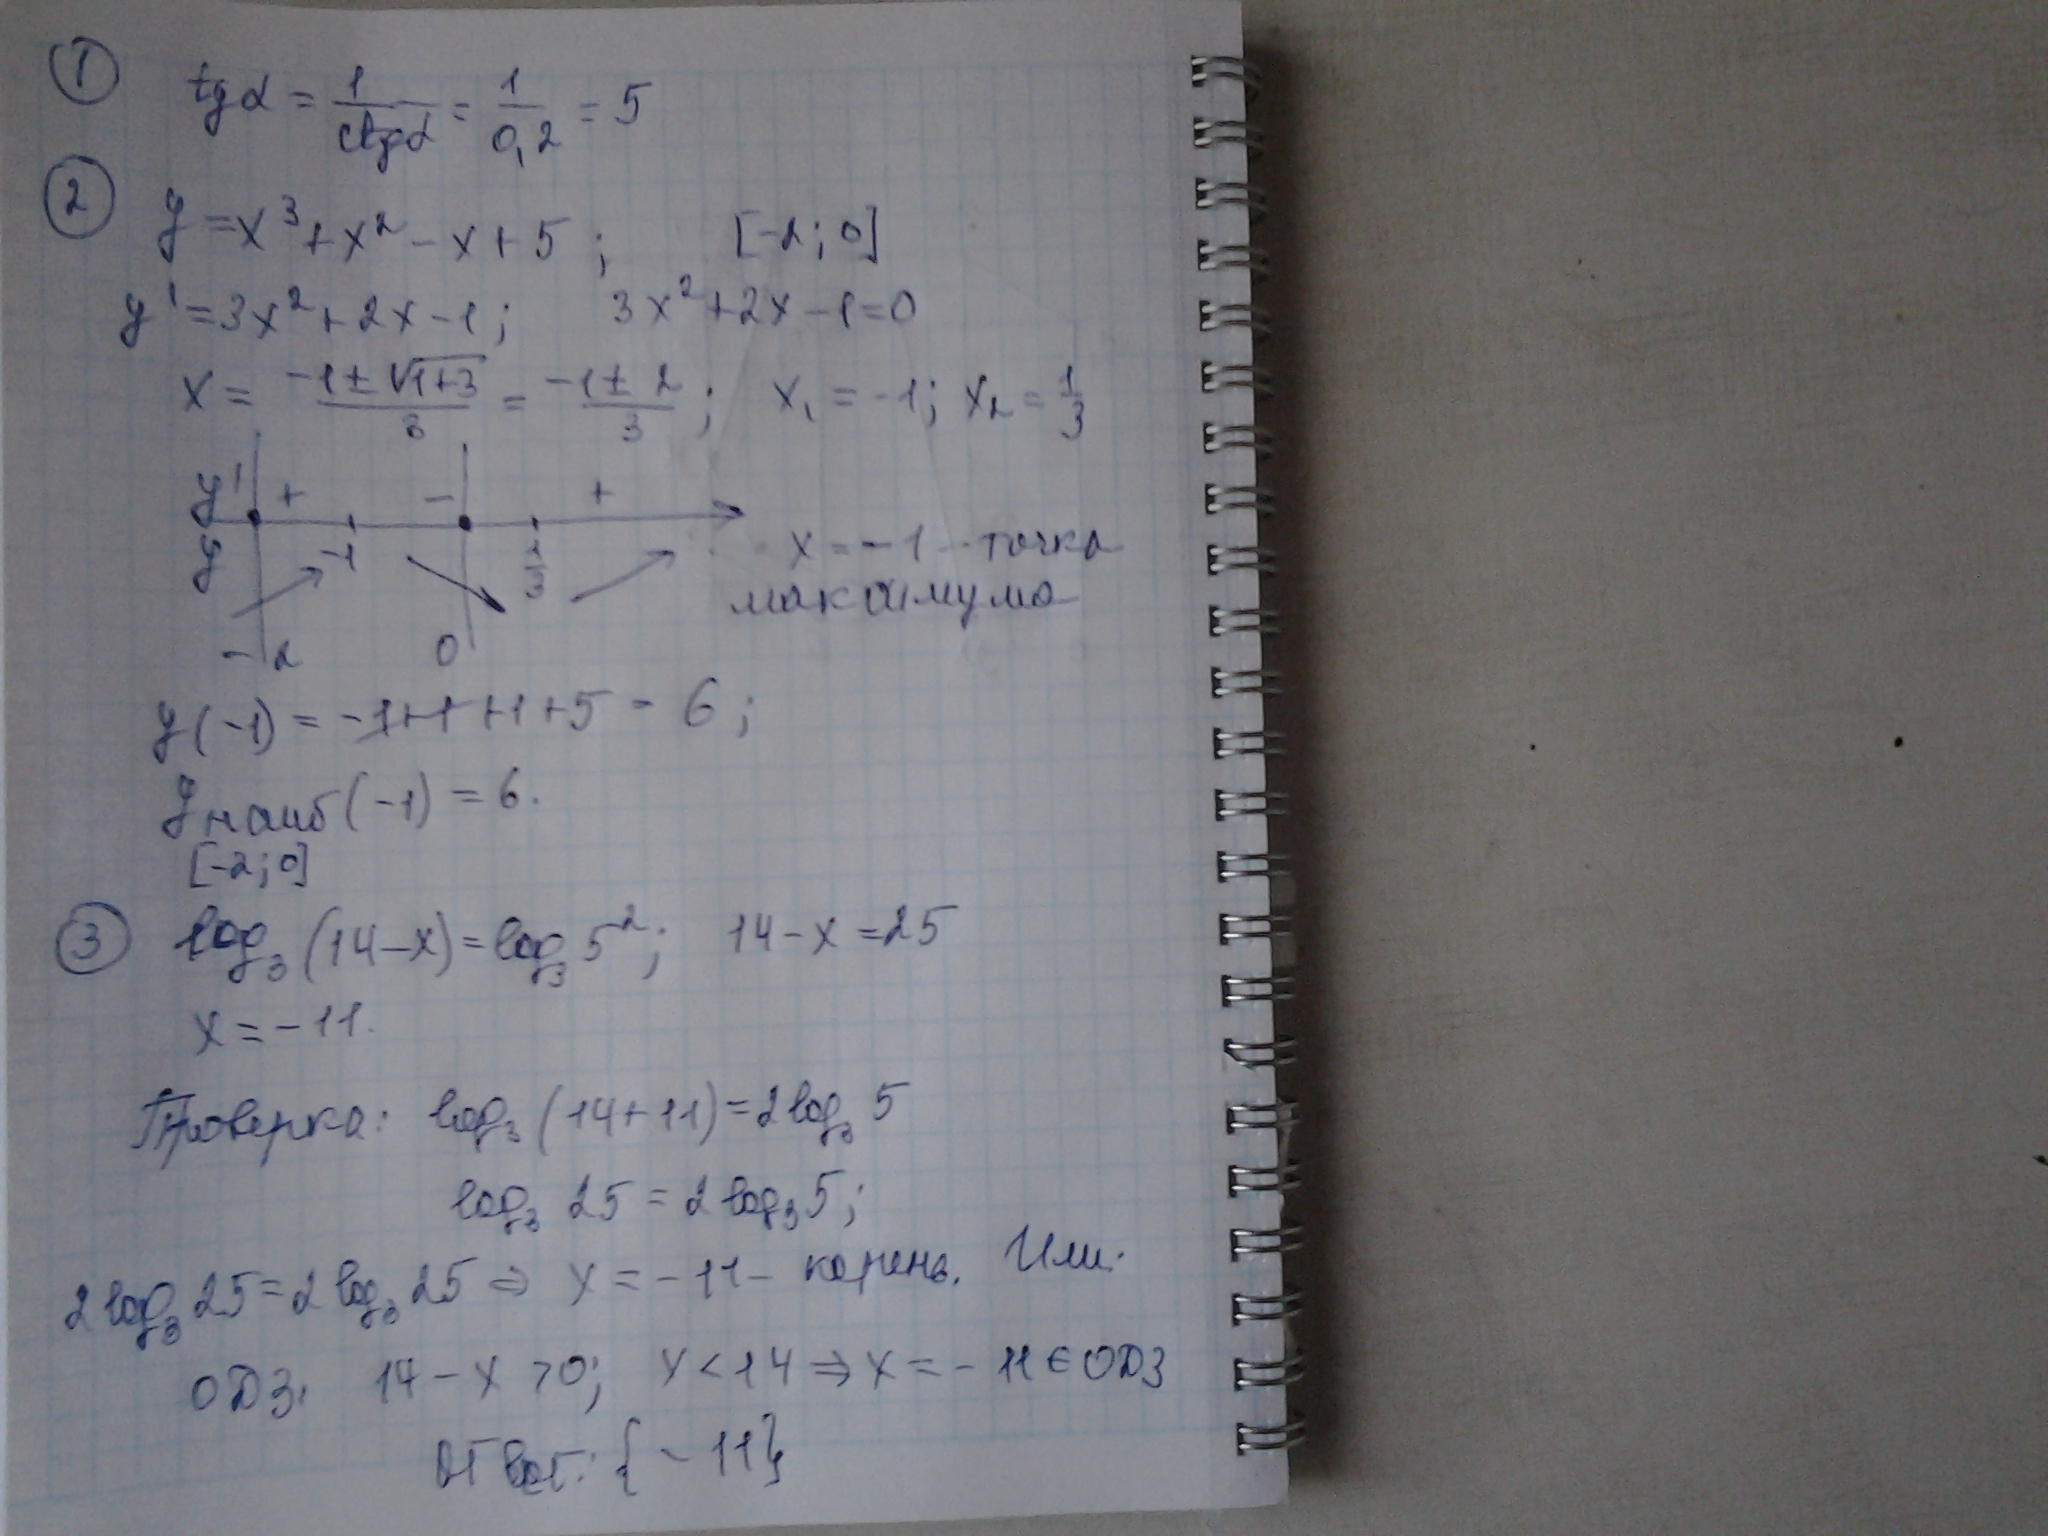 ① tgα = 1/ctgα = 1/0,2 = 5
② y = x³ + x² - x + 5 ; [-2; 0]
y' = 3x² + 2x - 1; 3x² + 2x - 1 = 0
x = (-1 ± √(1+3))/3 = (-1 ± 2)/3 ; x₁ = -1; x₂ = 1/3
y' + - +
y -1 1/3 x = -1 - точка
максимума
-2 0
y(-1) = -1+1+1+5 = 6;
y наиб (-1) = 6.
[-2; 0]
③ log₃(14-x) = log₃5²; 14 - x = 25
x = -11.
Проверка: log₃(14+11) = 2log₃5
log₃25 = 2log₃5;
2log₃25 = 2log₃25 ⇒ x = -11 - корень. Или:
ОДЗ: 14 - x > 0; x < 14 ⇒ x = -11 ∈ ОДЗ
Ответ: {-11}